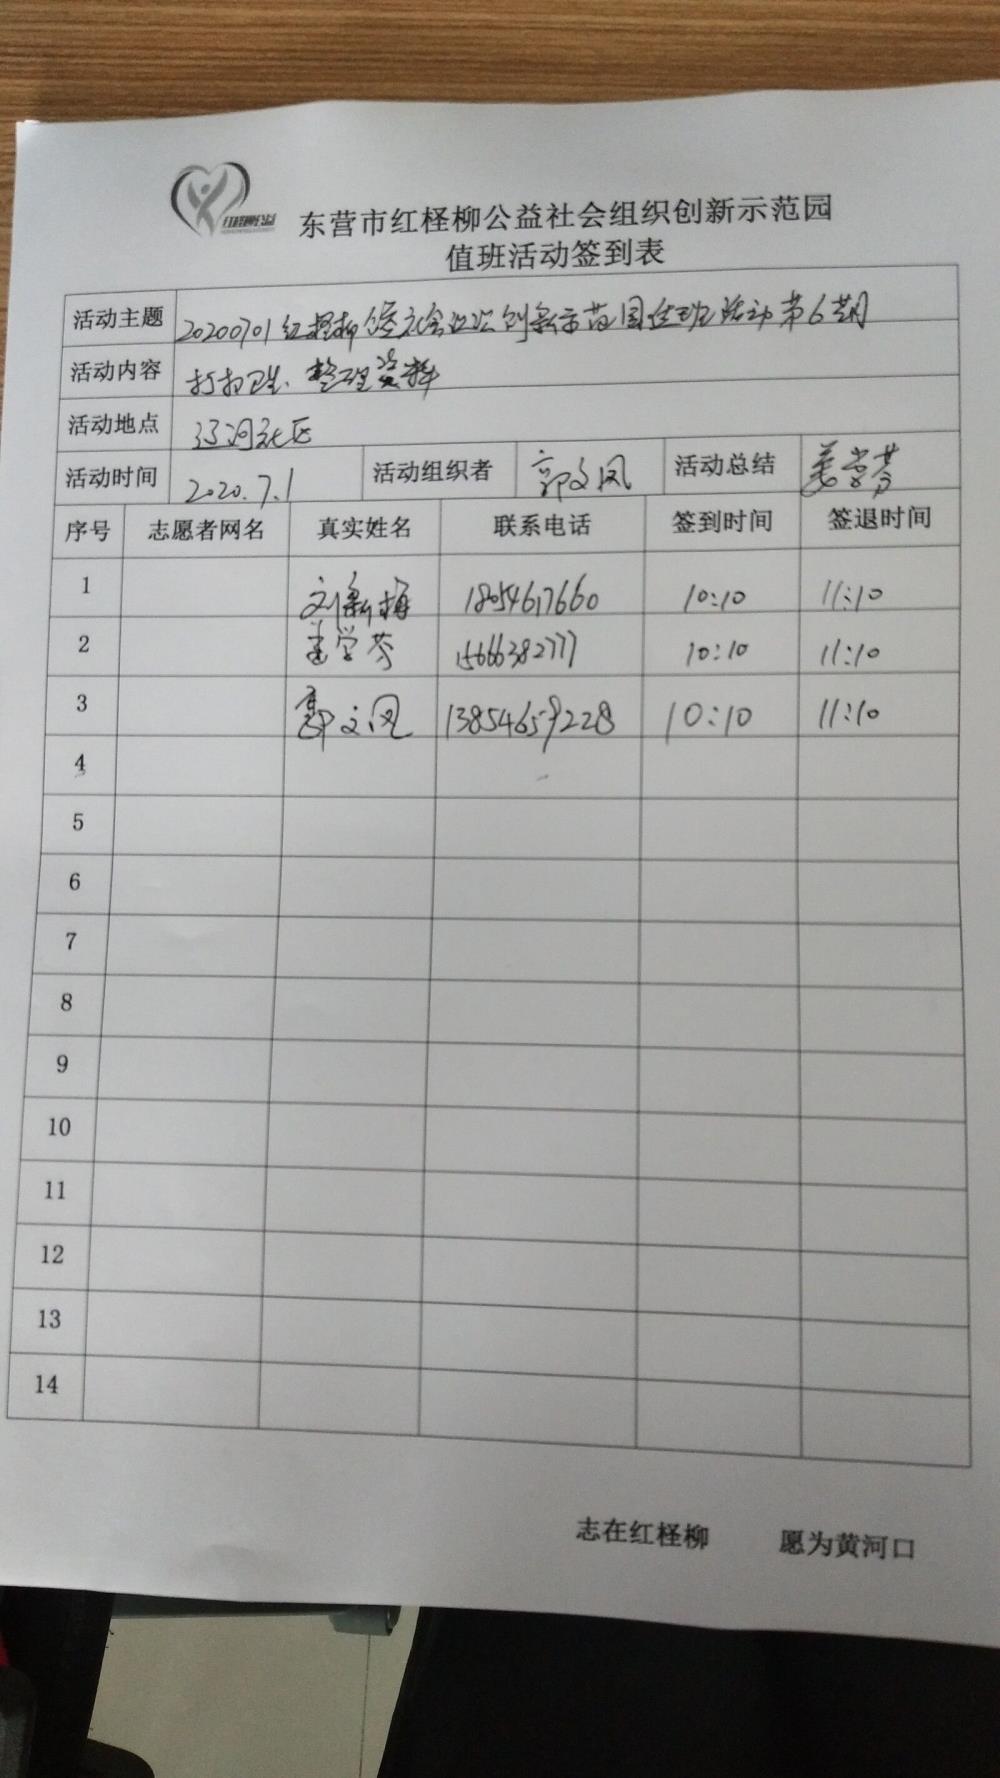 东营市红柽柳公益社会组织创新示范园
值班活动签到表
活动主题 20200701红柽柳公益社会组织创新示范园值班活动第6期
活动内容 打扫卫生、整理资料
活动地点 辽河社区
活动时间 2020.7.1 活动组织者 郭文凤 活动总结 姜学芬
序号 志愿者网名 真实姓名 联系电话 签到时间 签退时间
1 刘新梅 18054617660 10:10 11:10
2 姜学芬 15666382777 10:10 11:10
3 郭文凤 13854659228 10:10 11:10
4
5
6
7
8
9
10
11
12
13
14
志在红柽柳 愿为黄河口